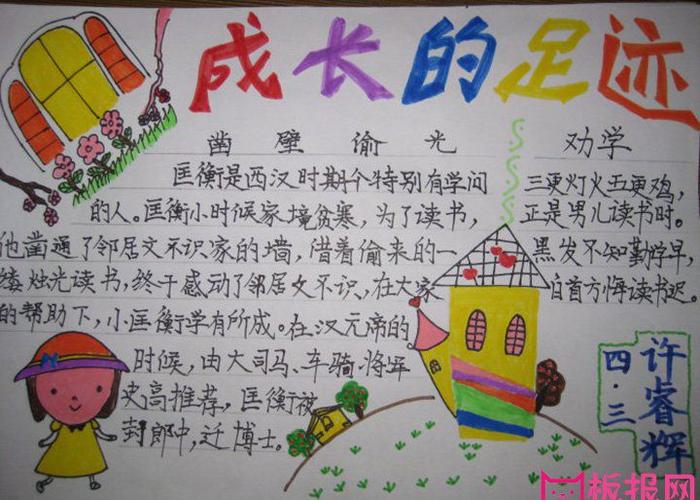 成长的足迹
凿壁偷光
匡衡是西汉时期个特别有学问
的人。匡衡小时候家境贫寒,为了读书,
他凿通了邻居文不识家的墙,借着偷来的一
缕烛光读书,终于感动了邻居文不识,在大家
的帮助下,小匡衡学有所成。在汉元帝的
时候,由大司马、车骑将军
史高推荐,匡衡被
封郎中,迁博士。
劝学
三更灯火五更鸡,
正是男儿读书时。
黑发不知勤学早,
白首方悔读书迟。
四·三
许睿辉
板报网